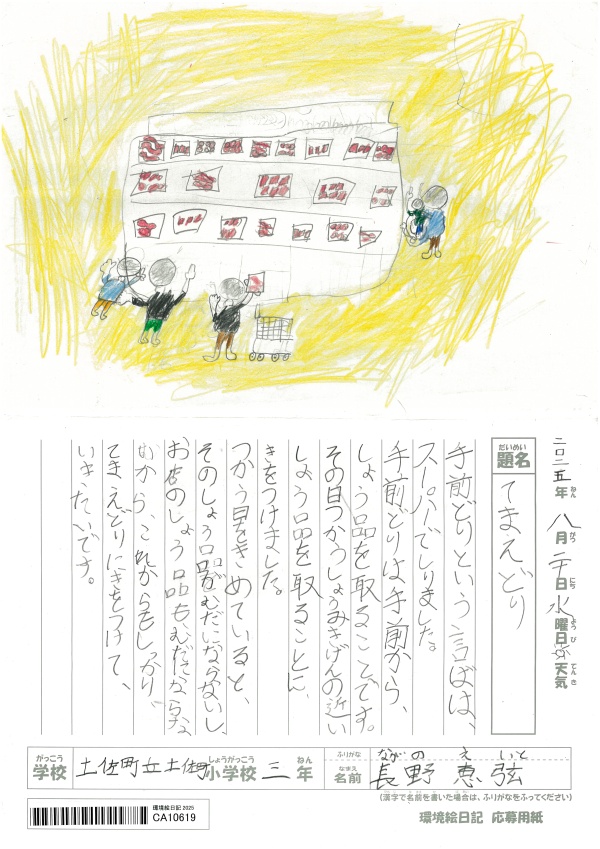 二〇二五年 八月 二十日 水曜日 天気
ねん がつ にち ようび てんき
だいめい
題名
てまえどり
手前どりという言ばは、
スーパーでしりました。
手前どりは手前から、
しょう品を取ることです。
その日つかうしょうみきげんの近い
しょう品を取ることに、
きをつけました。
つかう日をきめていると、
そのしょう品がむだいならないし、
お店のしょう品も、むだにならな
いから、これからもしっかり、
てまえどりにきをつけて、
いきたいです。
がっこう しょうがっこう ねん
学校 土佐町立土佐町小学校 三年
ふりがな ながの えいと
なまえ
名前 長野 恵弦
(漢字で名前を書いた場合は、ふりがなをふってください)
環境絵日記 2025
CA10619
環境絵日記 応募用紙